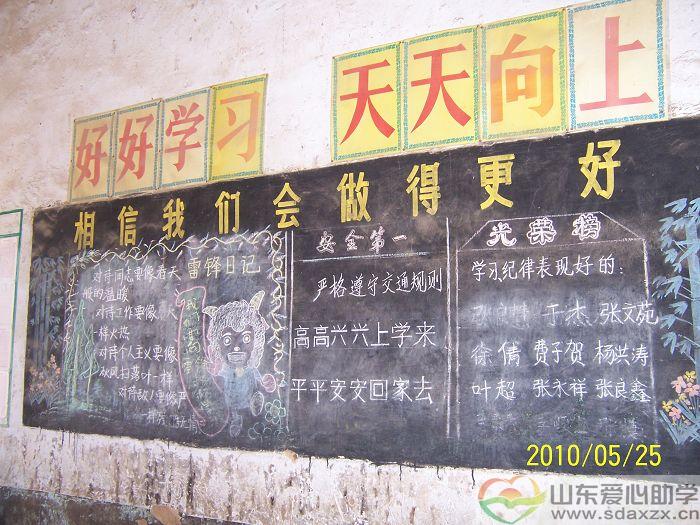 好好学习 天天向上
相信我们会做得更好
雷锋日记
对待同志要像春天
般的温暖
对待工作要像 火
一样火热
对待个人主义要像
秋风扫落叶一样
对待敌人要像严
安全第一
严格遵守交通规则
高高兴兴上学来
平平安安回家去
光荣榜
学习纪律表现好的:
于杰 张文苑
徐倩 费子贺 杨洪涛
叶超 张永祥 张良鑫
2010/05/25
山东爱心助学
www.sdaxzx.cn